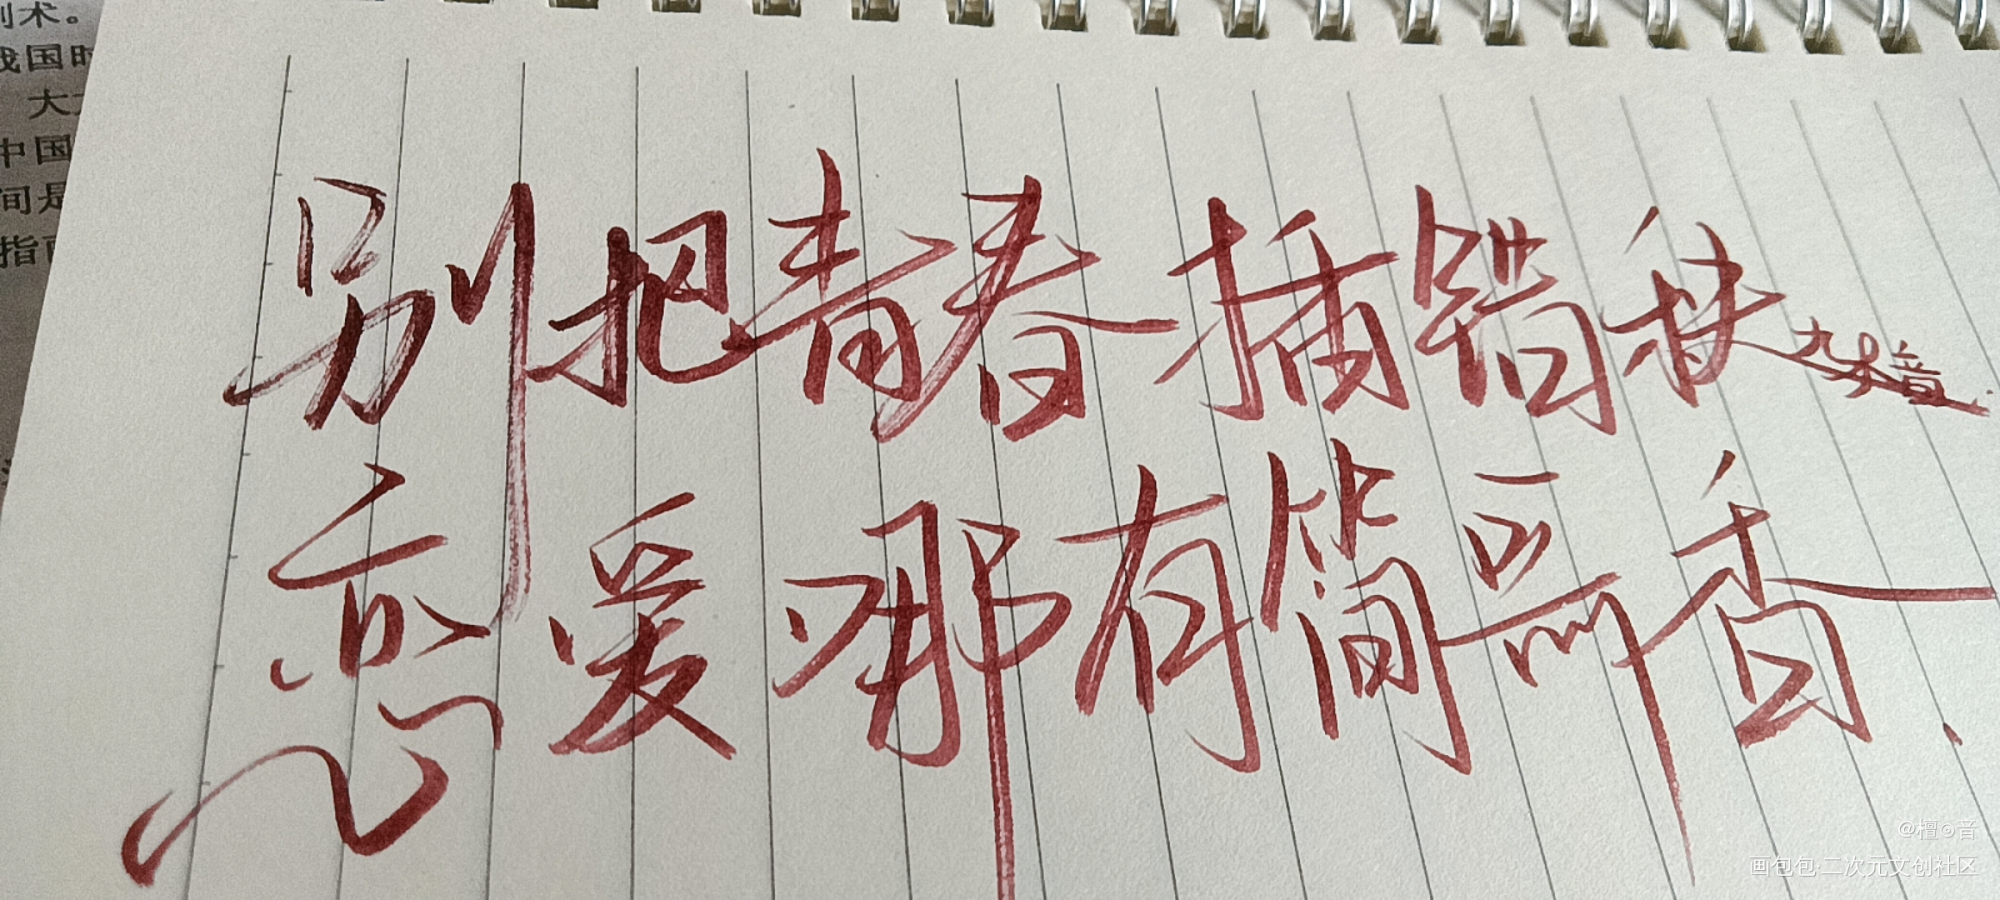 术。
我国时
大
中国
间是
指
别把青春插错秧
九木音
恋爱哪有简香
@檀⊙音
画包包·二次元文创社区